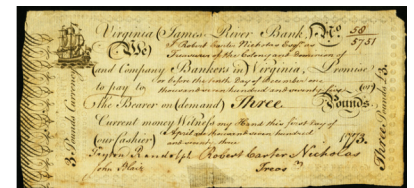 Virginia (James River Bank) No. 58
5751
(We) I Robert Carter Nicholas Esqr. as
Treasurer of the Colony and Dominion of
(and Company Bankers in) Virginia, Promise
or before the tenth Day of December one
to pay to thousand seven hundred and seventy five (or)
The Bearer (on demand) Three Pounds
Current money Witness my Hand this first day of
(our Cashier) April one thousand seven hundred
and seventy three 1773.
Peyton Randolph Robert Carter Nicholas
John Blair Treasr
3 Pounds Currency
3 Pounds
Three Pounds